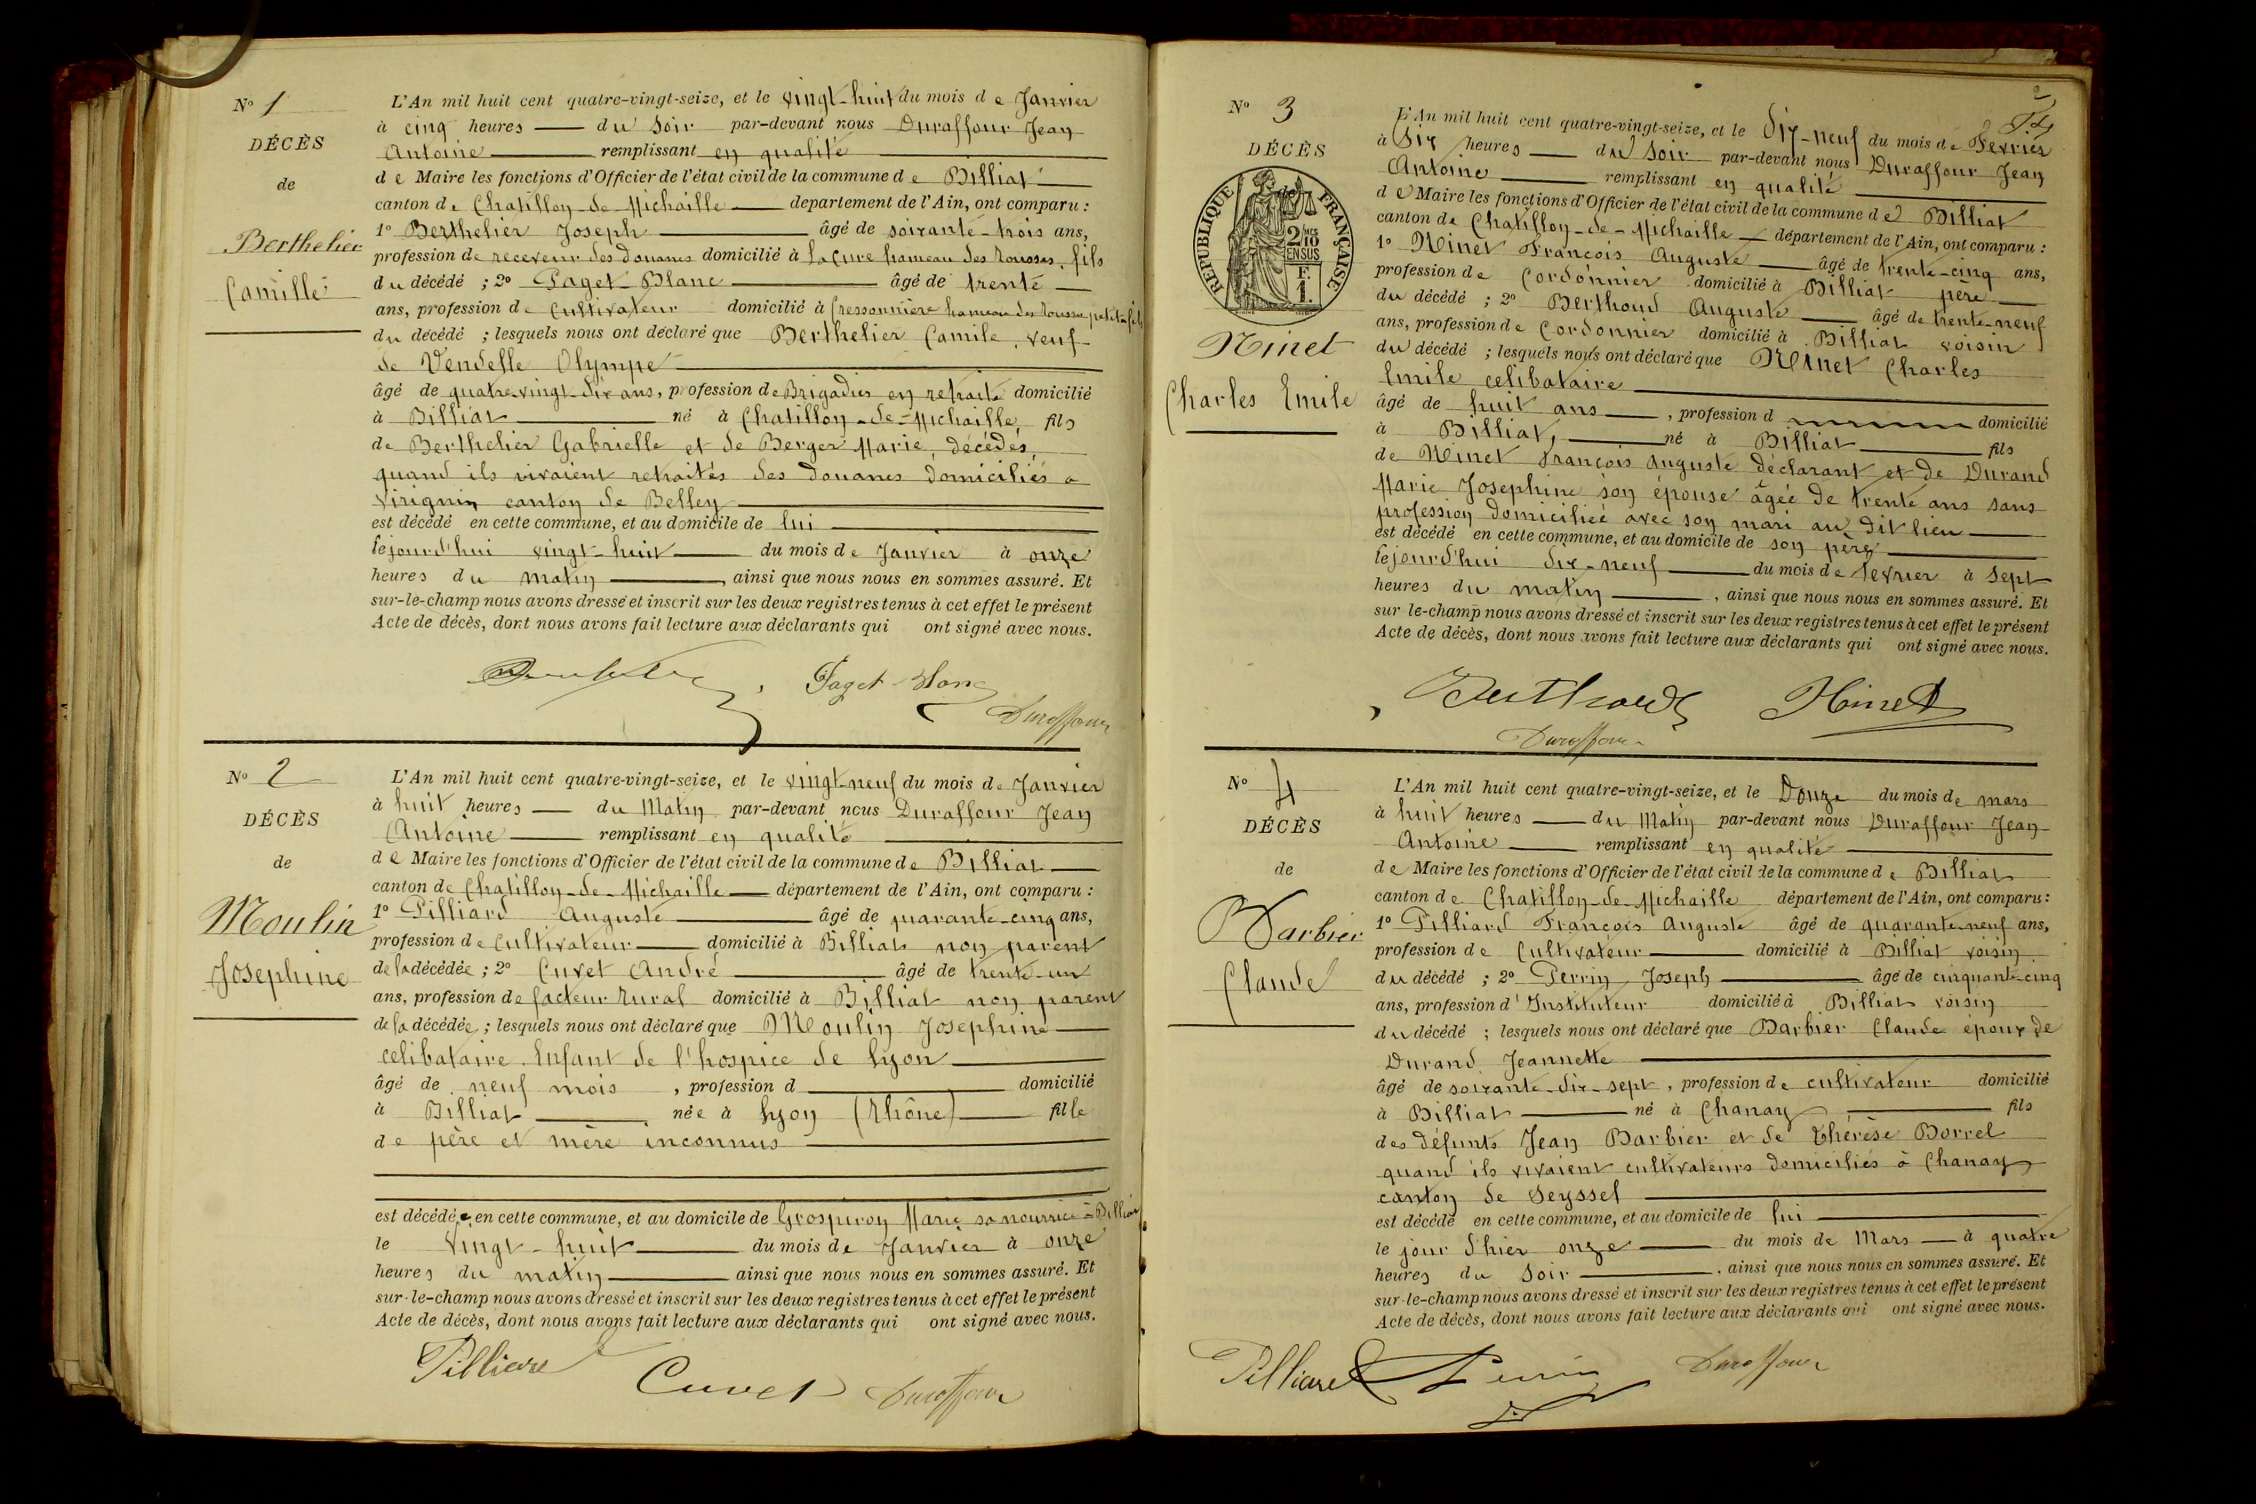 N° 1
DÉCÈS
de
Berthelier
Camille
L'An mil huit cent quatre-vingt-seize, et le vingt-huit du mois de Janvier
à cinq heures du soir par-devant nous Duraffour Jean
Antoine remplissant en qualité
de Maire les fonctions d'Officier de l'état civil de la commune de Billiat
canton de Chatillon-de-Michaille departement de l'Ain, ont comparu :
1° Berthelier Joseph âgé de soixante-trois ans,
profession de receveur des douanes domicilié à La Cure hameau des Rousses, fils
du décédé ; 2° Paget-Blanc âgé de trente
ans, profession de cultivateur domicilié à Cressonnière hameau des Rousses petit-fils
du décédé ; lesquels nous ont déclaré que Berthelier Camile, veuf
de Vendelle Olympe
âgé de quatre-vingt-dix ans, profession de Brigadier en retraite domicilié
à Billiat né à Chatillon-de-Michaille, fils
de Berthelier Gabrielle et de Berger Marie, décédés,
quand ils vivaient retraités des douanes domiciliés à
Virignin canton de Belley
est décédé en cette commune, et au domicile de lui
le jourd'hui vingt-huit du mois de Janvier à onze
heures du matin, ainsi que nous nous en sommes assuré. Et
sur-le-champ nous avons dressé et inscrit sur les deux registres tenus à cet effet le présent
Acte de décès, dont nous avons fait lecture aux déclarants qui ont signé avec nous.
Paget-Blanc
Duraffour
N° 2
DÉCÈS
de
Moulin
Josephine
L'An mil huit cent quatre-vingt-seize, et le vingt-neuf du mois de Janvier
à huit heures du Matin par-devant nous Duraffour Jean
Antoine remplissant en qualité
de Maire les fonctions d'Officier de l'état civil de la commune de Billiat
canton de Chatillon-de-Michaille département de l'Ain, ont comparu :
1° Pilliard Auguste âgé de quarante-cinq ans,
profession de cultivateur domicilié à Billiat non parent
de la décédée ; 2° Cuvet André âgé de trente-un
ans, profession de facteur rural domicilié à Billiat non parent
de la décédée ; lesquels nous ont déclaré que Moulin Josephine
celibataire. Enfant de l'hospice de Lyon
âgé de neuf mois, profession d domicilié
à Billiat née à Lyon (Rhône) fille
de père et mère inconnus
est décédée en cette commune, et au domicile de Grospiron Marie sa nourrice à Billiat
le vingt-huit du mois de Janvier à onze
heures du matin ainsi que nous nous en sommes assuré. Et
sur-le-champ nous avons dressé et inscrit sur les deux registres tenus à cet effet le présent
Acte de décès, dont nous avons fait lecture aux déclarants qui ont signé avec nous.
Pilliard Cuvet Duraffour
2
N° 3
DÉCÈS
de
RÉPUBLIQUE FRANÇAISE
2/10 EN SUS
F. 1.
Ninet
Charles Emile
L'An mil huit cent quatre-vingt-seize, et le dix-neuf du mois de Fevrier
à six heures du soir par-devant nous Duraffour Jean
Antoine remplissant en qualité
de Maire les fonctions d'Officier de l'état civil de la commune de Billiat
canton de Chatillon-de-Michaille département de l'Ain, ont comparu :
1° Ninet François Auguste âgé de trente-cinq ans,
profession de cordonnier domicilié à Billiat père
du décédé ; 2° Berthoud Auguste âgé de trente-neuf
ans, profession de cordonnier domicilié à Billiat voisin
du décédé ; lesquels nous ont déclaré que Ninet Charles
Emile celibataire
âgé de huit ans, profession d domicilié
à Billiat, né à Billiat fils
de Ninet François Auguste déclarant et de Durand
Marie Josephine son épouse âgée de trente ans sans
profession domiciliée avec son mari au dit lieu
est décédé en cette commune, et au domicile de son père
le jourd'hui dix-neuf du mois de fevrier à sept
heures du matin, ainsi que nous nous en sommes assuré. Et
sur-le-champ nous avons dressé et inscrit sur les deux registres tenus à cet effet le présent
Acte de décès, dont nous avons fait lecture aux déclarants qui ont signé avec nous.
Berthoud Ninet
Duraffour
N° 4
DÉCÈS
de
Barbier
Claude
L'An mil huit cent quatre-vingt-seize, et le Douze du mois de mars
à huit heures du Matin par-devant nous Duraffour Jean
Antoine remplissant en qualité
de Maire les fonctions d'Officier de l'état civil de la commune de Billiat
canton de Chatillon-de-Michaille département de l'Ain, ont comparu :
1° Pilliard François Auguste âgé de quarante-neuf ans,
profession de cultivateur domicilié à Billiat voisin
du décédé ; 2° Perrin Joseph âgé de cinquante-cinq
ans, profession d'Instituteur domicilié à Billiat voisin
du décédé ; lesquels nous ont déclaré que Barbier Claude époux de
Durand Jeannette
âgé de soixante-dix-sept, profession de cultivateur domicilié
à Billiat né à Chanay fils
des défunts Jean Barbier et de Thérèse Borrel
quand ils vivaient cultivateurs domiciliés à Chanay
canton de Seyssel
est décédé en cette commune, et au domicile de lui
le jour d'hier onze du mois de Mars à quatre
heures du soir, ainsi que nous nous en sommes assuré. Et
sur-le-champ nous avons dressé et inscrit sur les deux registres tenus à cet effet le présent
Acte de décès, dont nous avons fait lecture aux déclarants qui ont signé avec nous.
Pilliard Perrin Duraffour